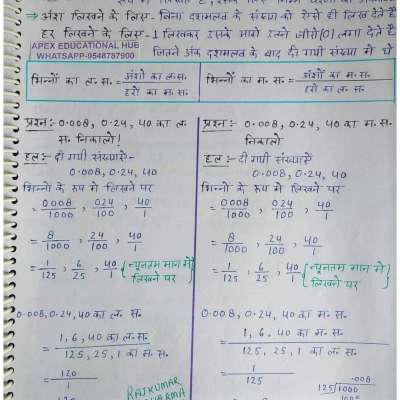 ⇒ अंश लिखने के लिए- बिना दशमलव के संख्या को ऐसे ही लिख देते हैं
हर लिखने के लिए- 1 लिखकर उसके आगे उतने जीरो[0] लगा देते हैं
APEX EDUCATIONAL HUB
WHATSAPP-9548787900
जितने अंक दशमलव के बाद दी गयी संख्या में थे
भिन्नों का ल० स० = अंशों का ल.स. / हरों का म.स.
भिन्नों का म० स० = अंशों का म.स. / हरों का ल.स.
प्रश्न:- 0.008, 0.24, 40 का ल०
स० निकालो!
हल:- दी गयी संख्याएँ-
0.008, 0.24, 40
भिन्नों के रूप में लिखने पर
= 0008/1000 , 024/100 , 40/1
= 8/1000 , 24/100 , 40/1
= 1/125 , 6/25 , 40/1 {न्यूनतम मान में लिखने पर
0.008, 0.24, 40 का ल० स०
= 1, 6, 40 का ल. स. / 125, 25, 1 का म. स.
= 120/1
RAJKUMAR
SHARMA
प्रश्न:- 0.008, 0.24, 40 का म. स.
निकालो
हल:- दी गयी संख्याएँ
0.008, 0.24, 40
भिन्नों के रूप में लिखने पर
= 0008/1000 , 024/100 , 40/1
= 8/1000 , 24/100 , 40/1
= 1/125 , 6/25 , 40/1 {न्यूनतम मान में लिखने पर
0.008, 0.24, 40 का म. स.
= 1, 6, 40 का म. स. / 125, 25, 1 का ल. स.
= 1/125
.008
125)1000